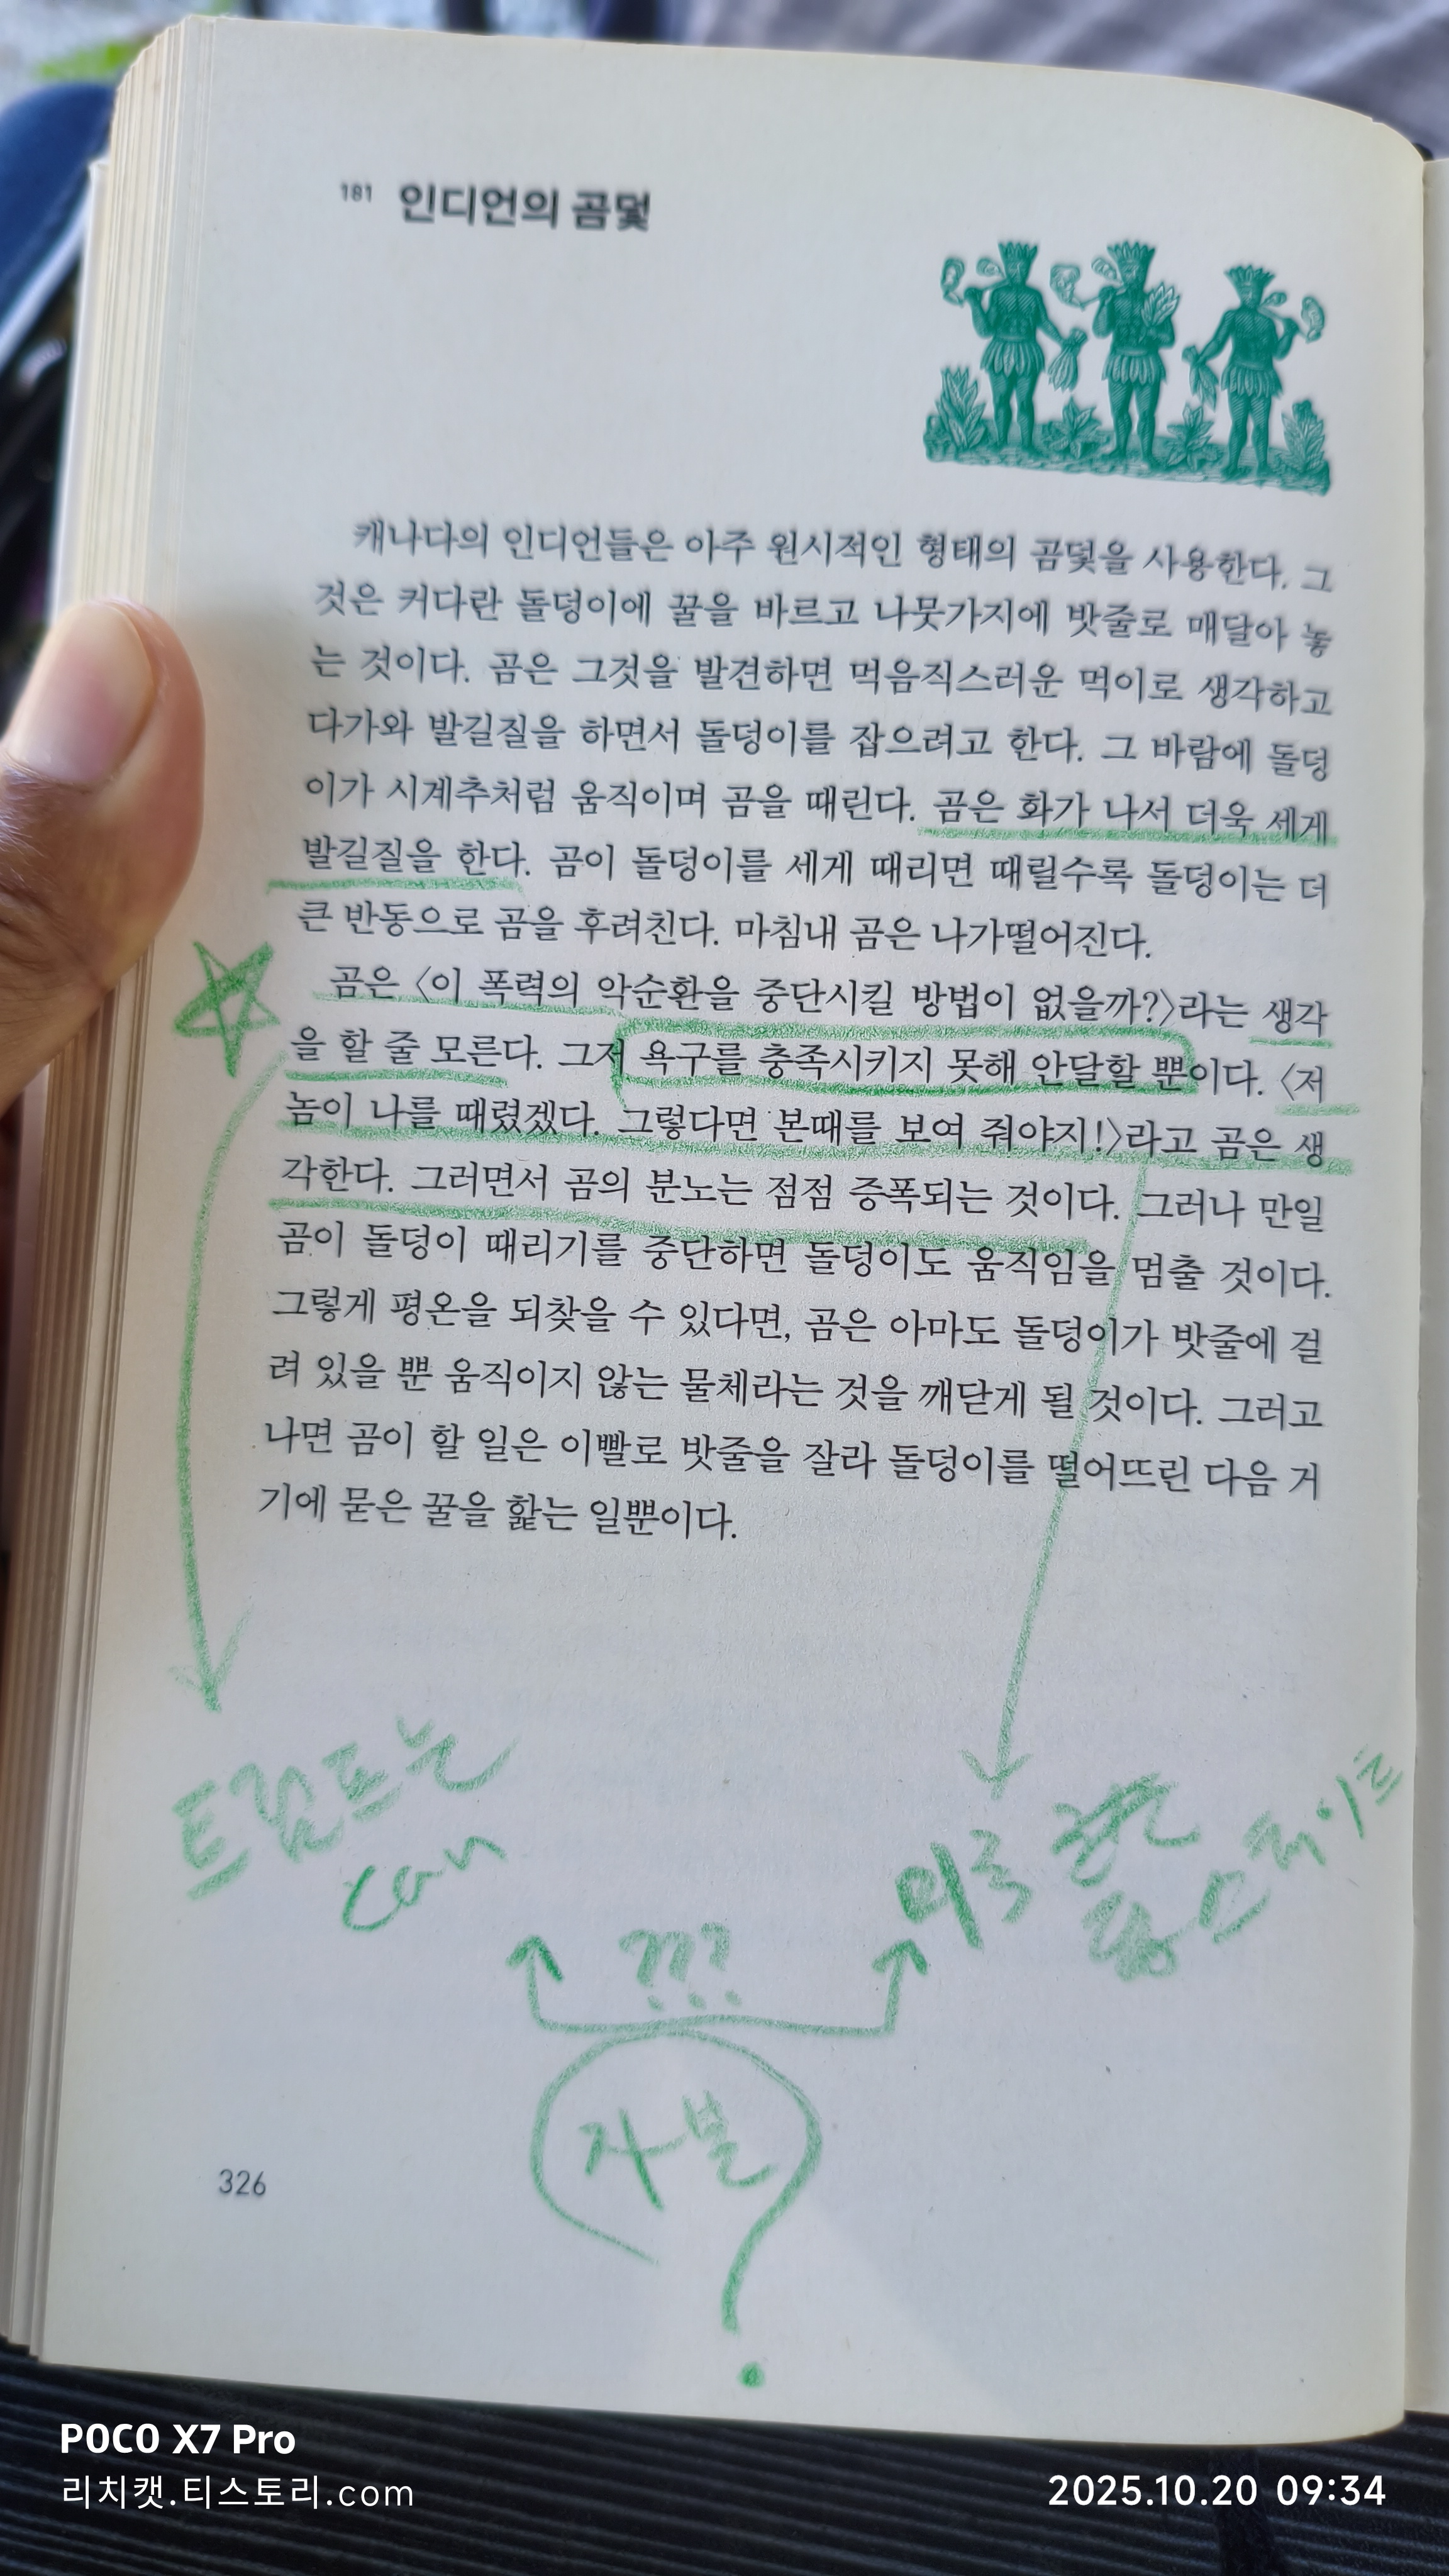 181 인디언의 곰덫
캐나다의 인디언들은 아주 원시적인 형태의 곰덫을 사용한다. 그
것은 커다란 돌덩이에 꿀을 바르고 나뭇가지에 밧줄로 매달아 놓
는 것이다. 곰은 그것을 발견하면 먹음직스러운 먹이로 생각하고
다가와 발길질을 하면서 돌덩이를 잡으려고 한다. 그 바람에 돌덩
이가 시계추처럼 움직이며 곰을 때린다. 곰은 화가 나서 더욱 세게
발길질을 한다. 곰이 돌덩이를 세게 때리면 때릴수록 돌덩이는 더
큰 반동으로 곰을 후려친다. 마침내 곰은 나가떨어진다.
곰은 〈이 폭력의 악순환을 중단시킬 방법이 없을까?〉라는 생각
을 할 줄 모른다. 그저 욕구를 충족시키지 못해 안달할 뿐이다. 〈저
놈이 나를 때렸겠다. 그렇다면 본때를 보여 줘야지!〉라고 곰은 생
각한다. 그러면서 곰의 분노는 점점 증폭되는 것이다. 그러나 만일
곰이 돌덩이 때리기를 중단하면 돌덩이도 움직임을 멈출 것이다.
그렇게 평온을 되찾을 수 있다면, 곰은 아마도 돌덩이가 밧줄에 걸
려 있을 뿐 움직이지 않는 물체라는 것을 깨닫게 될 것이다. 그러고
나면 곰이 할 일은 이빨로 밧줄을 잘라 돌덩이를 떨어뜨린 다음 거
기에 묻은 꿀을 핥는 일뿐이다.
트럼프는
can
미국
???
자본
?
326
POCO X7 Pro
리치캣.티스토리.com
2025.10.20 09:34